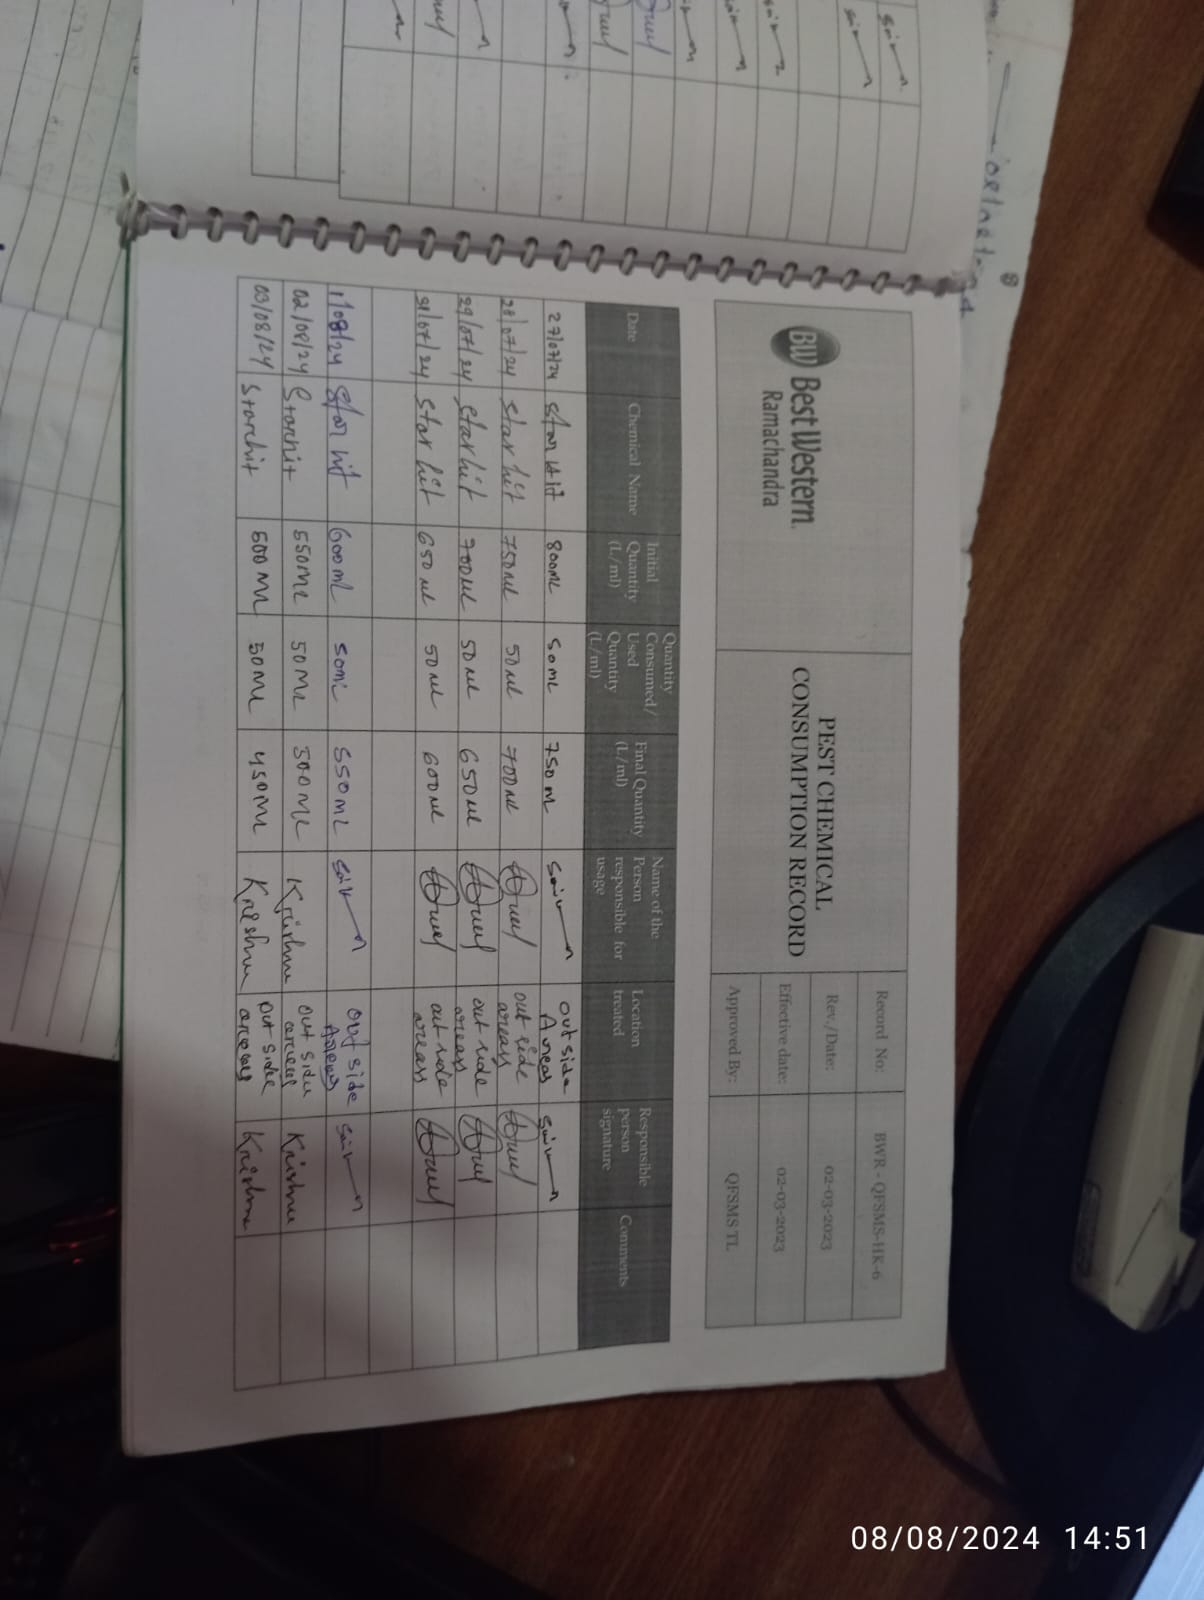 BW Best Western.
Ramachandra
PEST CHEMICAL
CONSUMPTION RECORD
Record No: BWR - QFSMS-HK-6
Rev./Date: 02-03-2023
Effective date: 02-03-2023
Approved By: QFSMS TL
Date Chemical Name Initial Quantity (L/ml) Quantity Consumed/ Used Quantity (L/ml) Final Quantity (L/ml) Name of the Person responsible for usage Location treated Responsible person signature Comments
27/07/24 Star Hit 800ML 50ML 750M out side Areas
28/07/24 Star hit 750ml 50ml 700ml out side areass
29/07/24 Star hit 700ml 50ml 650ml out side areass
31/07/24 Star hit 650ml 50ml 600ml out side areass
1/08/24 Star hit 600ml 50ml 550ML out side Areas
02/08/24 Starhit 550ML 50ML 500ML Krishna out side Krishna
03/08/24 Starhit 500ML 50ML 450ML Krishna out side Krishna
08/08/2024 14:51